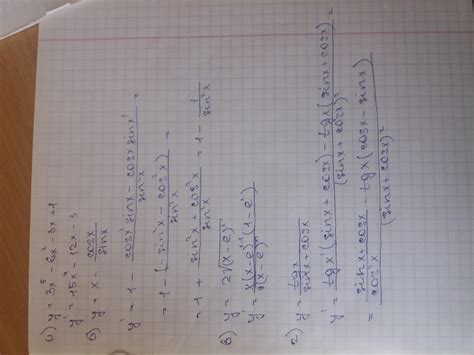 а) y = 3x⁵ - 6x² - 3x + 1
y' = 15x⁴ - 12x - 3
б) y = x - cosx/sinx
y' = 1 - (cosx' sinx - cosx sinx')/sin²x =
= 1 - (-(sin²x - cos²x))/sin²x =
= 1 + (sin²x + cos²x)/sin²x = 1 - 1/sin²x
в) y = 2√(x - e)
г) y = tgx/(sinx + cosx)
y' = (tgx'(sinx + cosx) - tgx(sinx + cosx)')/(sinx + cosx)² =
= ((sinx + cosx)/cos²x - tgx(cosx - sinx))/(sinx + cosx)²